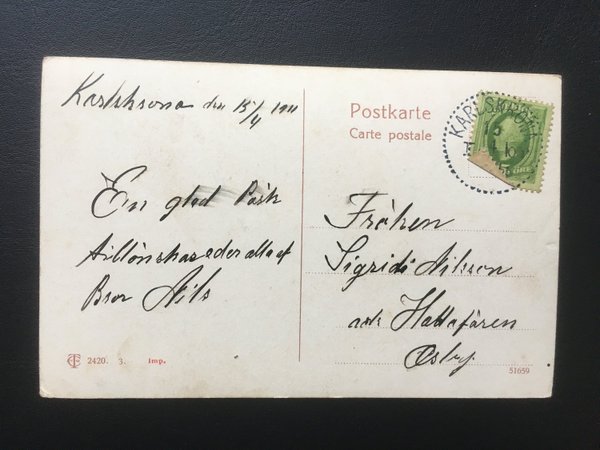 Karlskrona den 15/4 1911
Postkarte
Carte postale
KARLSKRONA
En glad Påsk
tillönskas eder alla af
Bror Nils
Fröken
Sigrid Nilsson
Osby
2420. 3. Imp.
51659